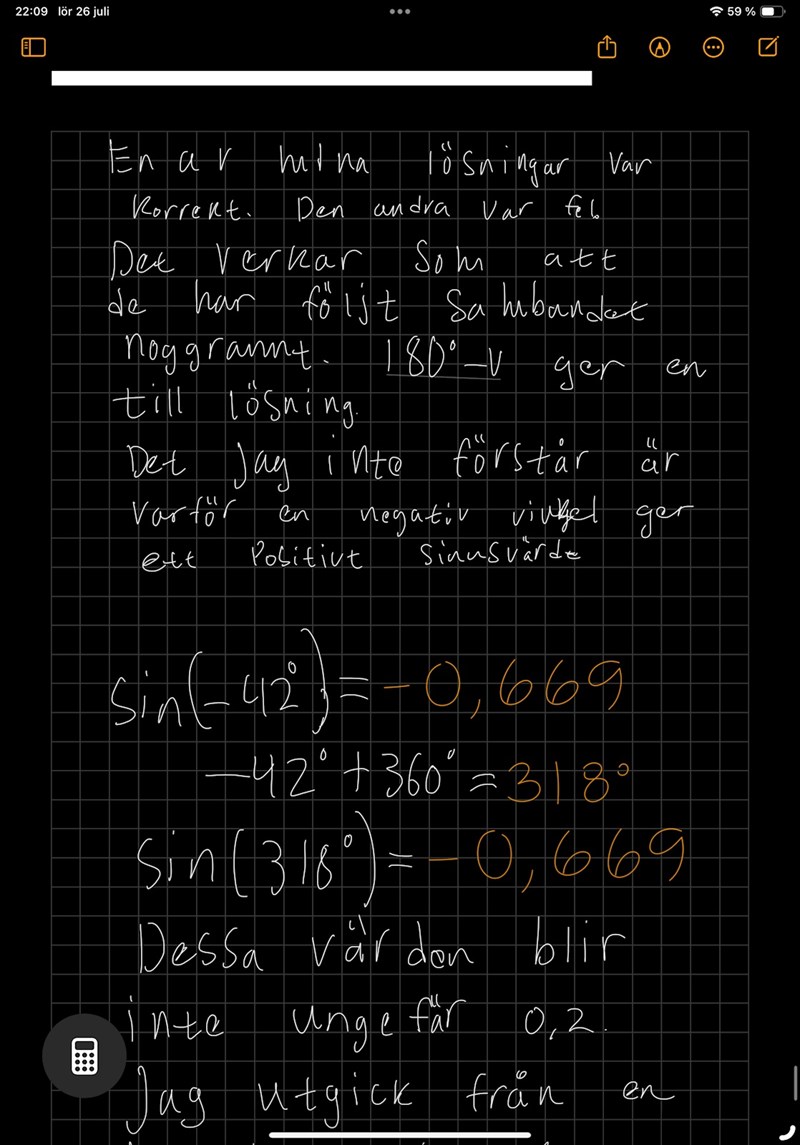 22:09 lör 26 juli
59 %
En av mina lösningar var
korrekt. Den andra var fel.
Det verkar som att
de har följt sambandet
noggrannt. 180°-v ger en
till lösning.
Det jag inte förstår är
varför en negativ vinkel ger
ett positivt sinusvärde
sin(-42°)=-0,669
-42°+360°=318°
sin(318°)=-0,669
Dessa värden blir
inte ungefär 0,2.
Jag utgick från en